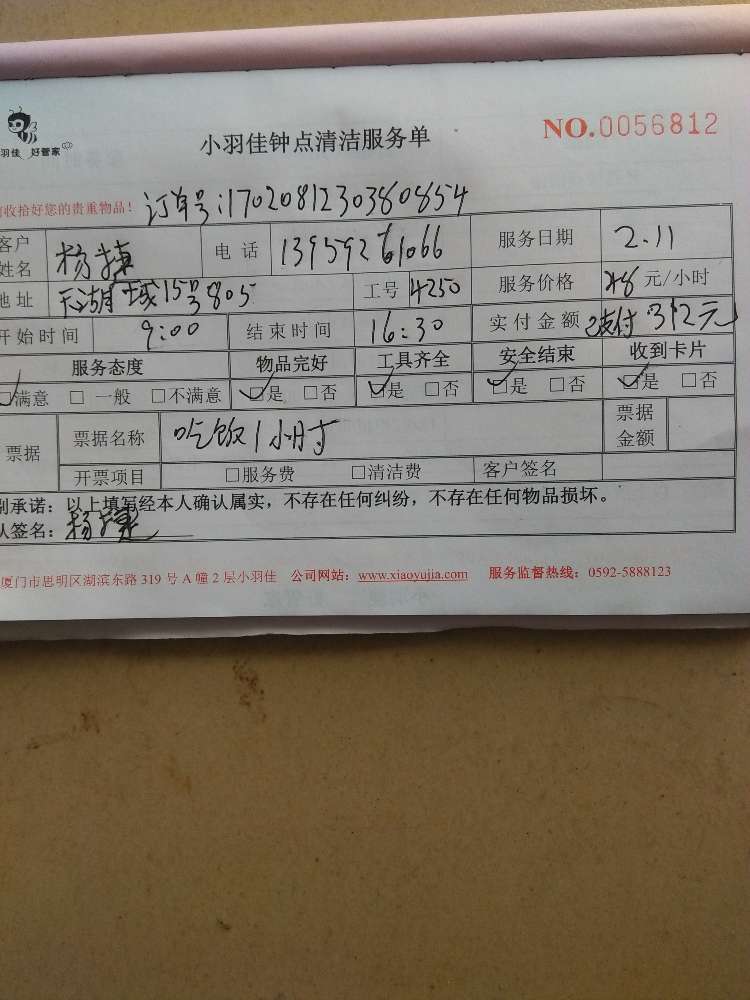 羽佳 好管家
小羽佳钟点清洁服务单
NO.0056812
收拾好您的贵重物品! 订单号:1702081230380854
客户姓名 杨 电话 13959261066 服务日期 2.11
地址 天湖城15号805 工号 4250 服务价格 48元/小时
开始时间 9:00 结束时间 16:30 实付金额 已支付312元
服务态度 物品完好 工具齐全 安全结束 收到卡片
☑满意 □一般 □不满意 ☑是 □否 ☑是 □否 ☑是 □否 ☑是 □否
票据 票据名称 吃饭1小时 票据金额
开票项目 □服务费 □清洁费 客户签名
别承诺:以上填写经本人确认属实,不存在任何纠纷,不存在任何物品损坏。
人签名:杨
厦门市思明区湖滨东路 319 号 A 幢 2 层小羽佳 公司网站:www.xiaoyujia.com 服务监督热线:0592-5888123